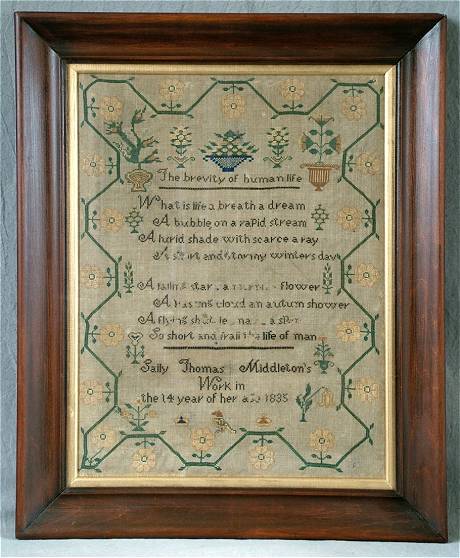 The brevity of human life
What is life a breath a dream
A bubble on a rapid stream
A lurid shade with scarce a ray
A short and stormy winters day
A falling star a flower
A passing cloud an autumn shower
A flying
So short and frail the life of man
Sally Thomas Middleton's
Work in
the 14 year of her age 1835